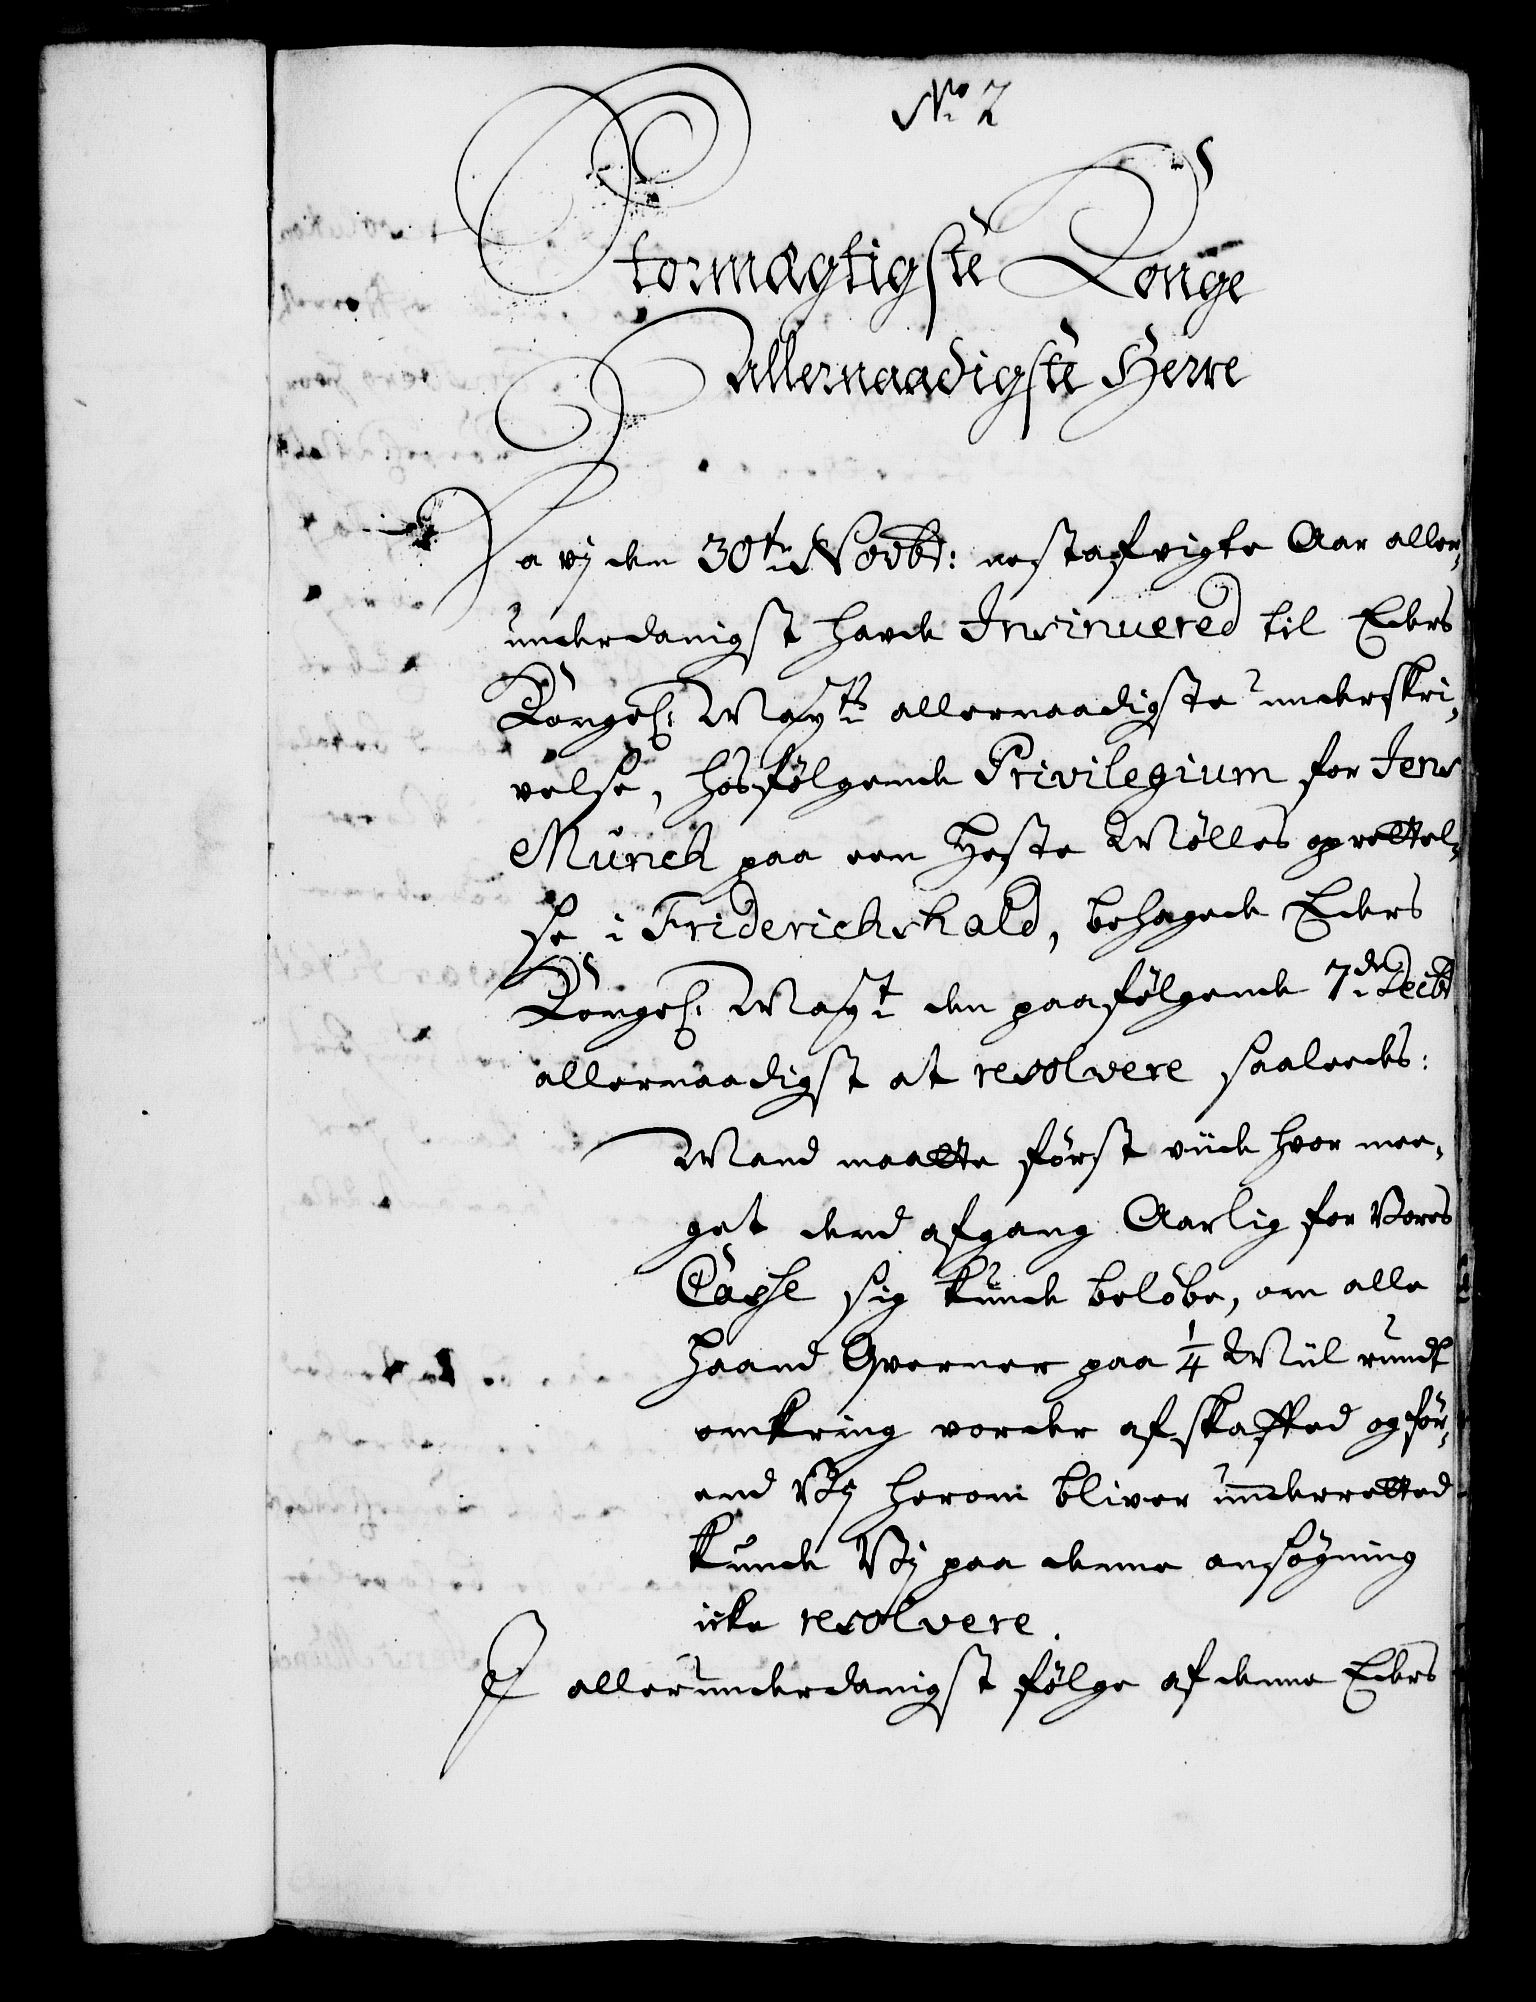 No 2
Stormægtigste Konge
allernaadigste Herre
Da vj den 30te Novbr: nestafvigte Aar aller,
underdanigst havde Insinuered til Eders
Kongel: Mayts allernaadigste underskri,
velse, hosfølgende Privilegium for Jens
Munch paa een Heste Mølles oprettel,
se i Friderichshald, behagede Eders
Kongel: Mayt den paafølgende 7de Decbr
allernaadigst at resolvere saaleedes:
Mand maatte først viide hvor mee,
get dend afgang Aarlig for Vores
Casse sig kunde beløbe, om alle
Haand Qverner paa 1/4 Miil rundt
omkring vorder afskaffed og før,
end Vij herom bliver underretted
kunde Vj paa denne ansøgning
icke resolvere.
I allerunderdanigst følge af denne Eders